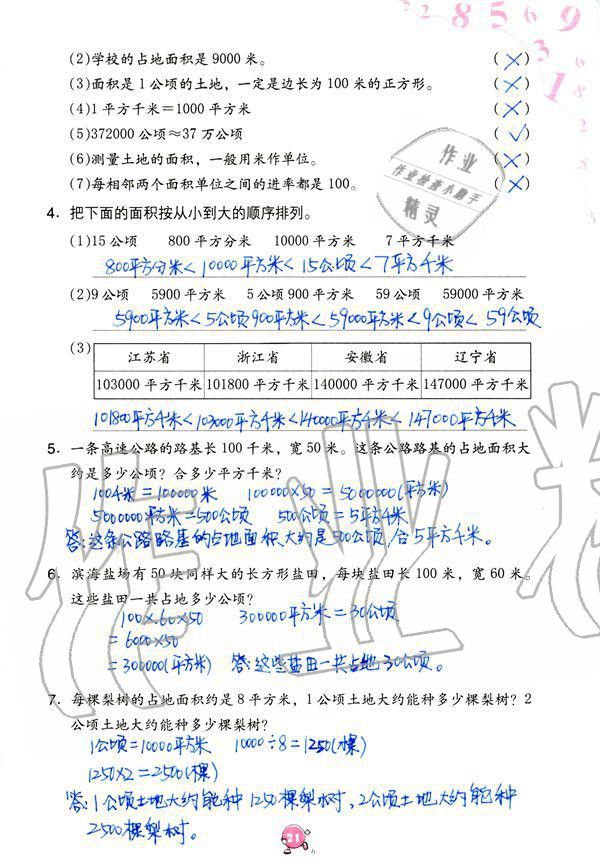 3 2 8 5 6 9
(2)学校的占地面积是 9000 米。 (×)
(3)面积是 1 公顷的土地，一定是边长为 100 米的正方形。 (×)
(4)1 平方千米＝1000 平方米 (×)
(5)372000 公顷≈37 万公顷 (√)
(6)测量土地的面积，一般用米作单位。 (×)
(7)每相邻两个面积单位之间的进率都是 100。 (×)
作业
作业检查小助手
精灵
4. 把下面的面积按从小到大的顺序排列。
(1)15 公顷 800 平方分米 10000 平方米 7 平方千米
800平方分米<10000平方米<15公顷<7平方千米
(2)9 公顷 5900 平方米 5 公顷 900 平方米 59 公顷 59000 平方米
5900平方米<5公顷900平方米<59000平方米<9公顷<59公顷
(3)
江苏省 浙江省 安徽省 辽宁省
103000 平方千米 101800 平方千米 140000 平方千米 147000 平方千米
101800平方千米<103000平方千米<140000平方千米<147000平方千米
5. 一条高速公路的路基长 100 千米，宽 50 米。这条公路路基的占地面积大
约是多少公顷？合多少平方千米？
100千米=100000米 100000×50=5000000(平方米)
5000000平方米=500公顷 500公顷=5平方千米
答:这条公路路基的占地面积大约是500公顷,合5平方千米。
6. 滨海盐场有 50 块同样大的长方形盐田，每块盐田长 100 米，宽 60 米。
这些盐田一共占地多少公顷？
100×60×50 300000平方米=30公顷
=6000×50
=300000(平方米) 答:这些盐田一共占地30公顷。
7. 每棵梨树的占地面积约是 8 平方米，1 公顷土地大约能种多少棵梨树？2
公顷土地大约能种多少棵梨树？
1公顷=10000平方米 10000÷8=1250(棵)
1250×2=2500(棵)
答:1公顷土地大约能种1250棵梨树,2公顷土地大约能种
2500棵梨树。
21